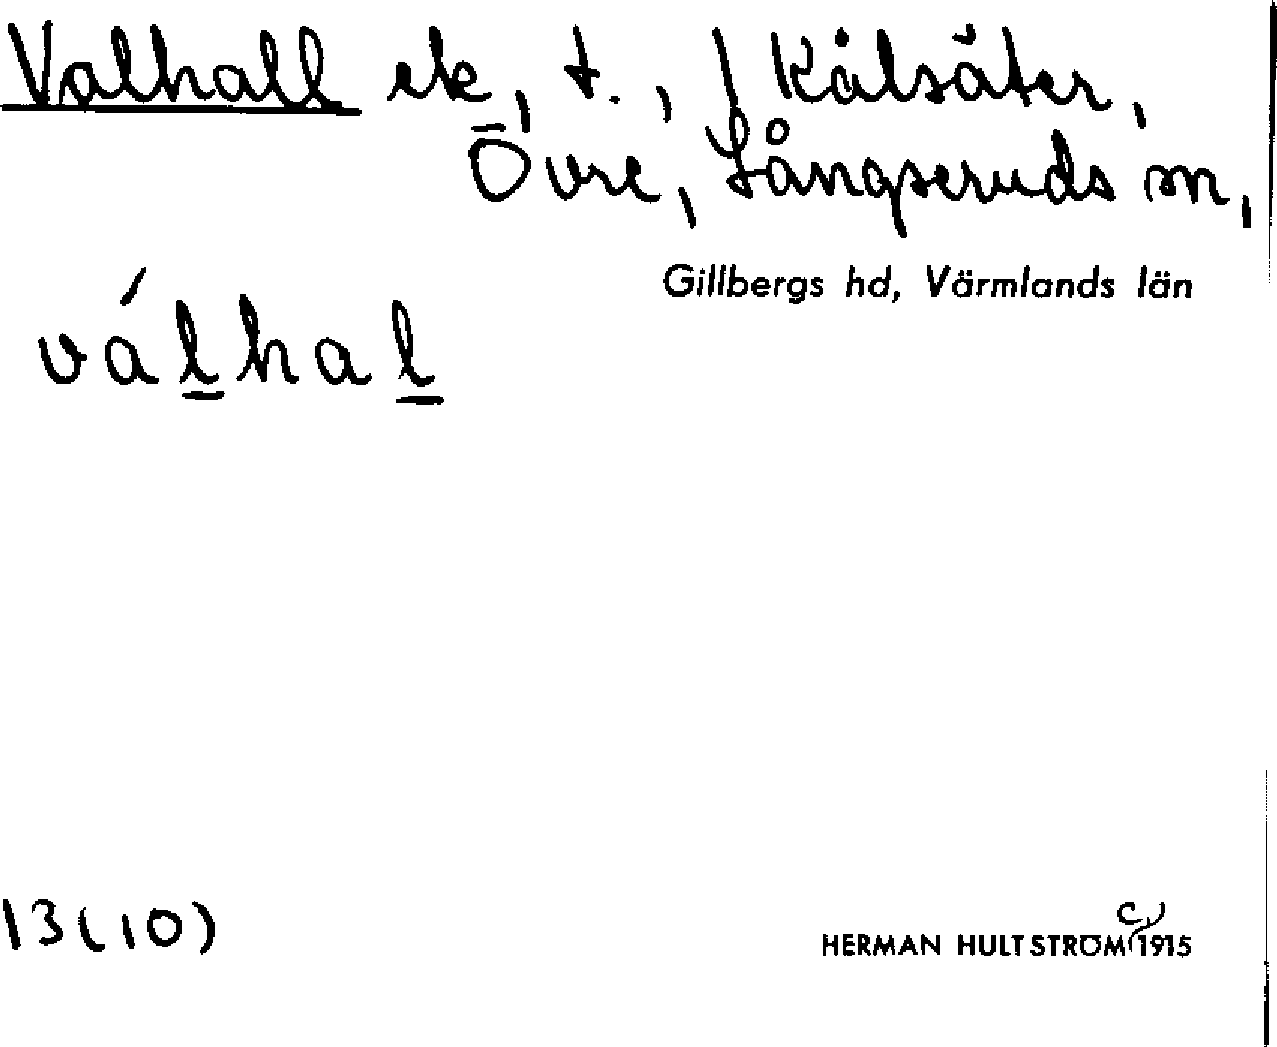 Valhall ek, t., Kålsäter,
Övre, Långseruds sn,
Gillbergs hd, Värmlands län
válhal
13(10)
HERMAN HULTSTRÖM c. 1915